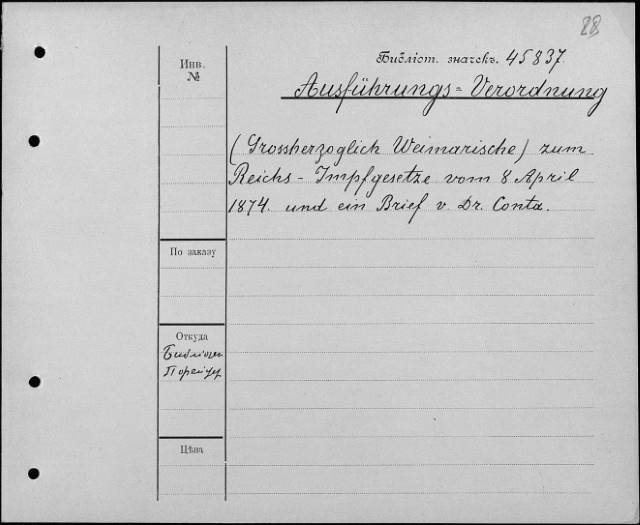 28
Библіот. значекъ. 45837.
Инв.
№
Ausführungs=Verordnung
(Grossherzoglich Weimarische) zum
Reichs-Impfgesetze vom 8 April
1874. und ein Brief v. Dr. Conta.
По заказу
Откуда
Цѣна